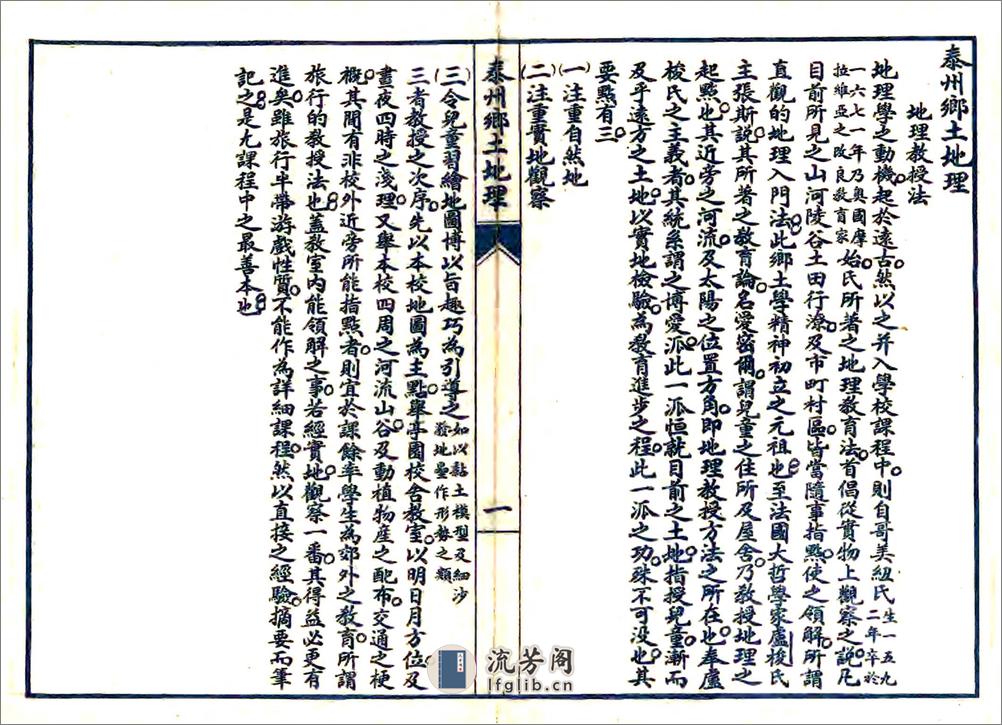 泰州鄉土地理
地理教授法
地理學之動機起於遠古然以之并入學校課程中則自哥美紐氏生一五九二年卒於
一六七一年乃奧國摩拉維亞之改良教育家始氏所著之地理教育法首倡從實物上觀察之説凡
目前所見之山河陵谷土田行潦及市町村區皆當隨事指點使之領解所謂
直觀的地理入門法此鄉土學精神初立之元祖也至法國大哲學家盧梭氏
主張斯説其所著之教育論名愛密爾謂兒童之住所及屋舍乃教授地理之
起點也其近旁之河流及太陽之位置方角即地理教授方法之所在也奉盧
梭氏之主義者其統系謂之博愛派此一派恒就目前之土地指授兒童漸而
及乎遠方之土地以實地檢驗為教育進步之程此一派之功殊不可没也其
要點有三
(一)注重自然地
(二)注重實地觀察
泰州鄉土地理
一
(三)令兒童習繪地圖博以旨趣巧為引導之如以黏土模型及細沙發地壘作形勢之類
三者教授之次序先以本校地圖為主點舉亭園校舍教室以明日月方位及
晝夜四時之淺理又舉本校四周之河流山谷及動植物產之配布交通之梗
概其間有非校外近旁所能指點者則宜於課餘率學生為郊外之教育所謂
旅行的教授法也蓋教室内能領解之事若經實地觀察一番其得益必更有
進矣雖旅行半帶游戲性質不能作為詳細課程然以直接之經驗摘要而筆
記之是尤課程中之最善本也
流芳阁
lfglib.cn